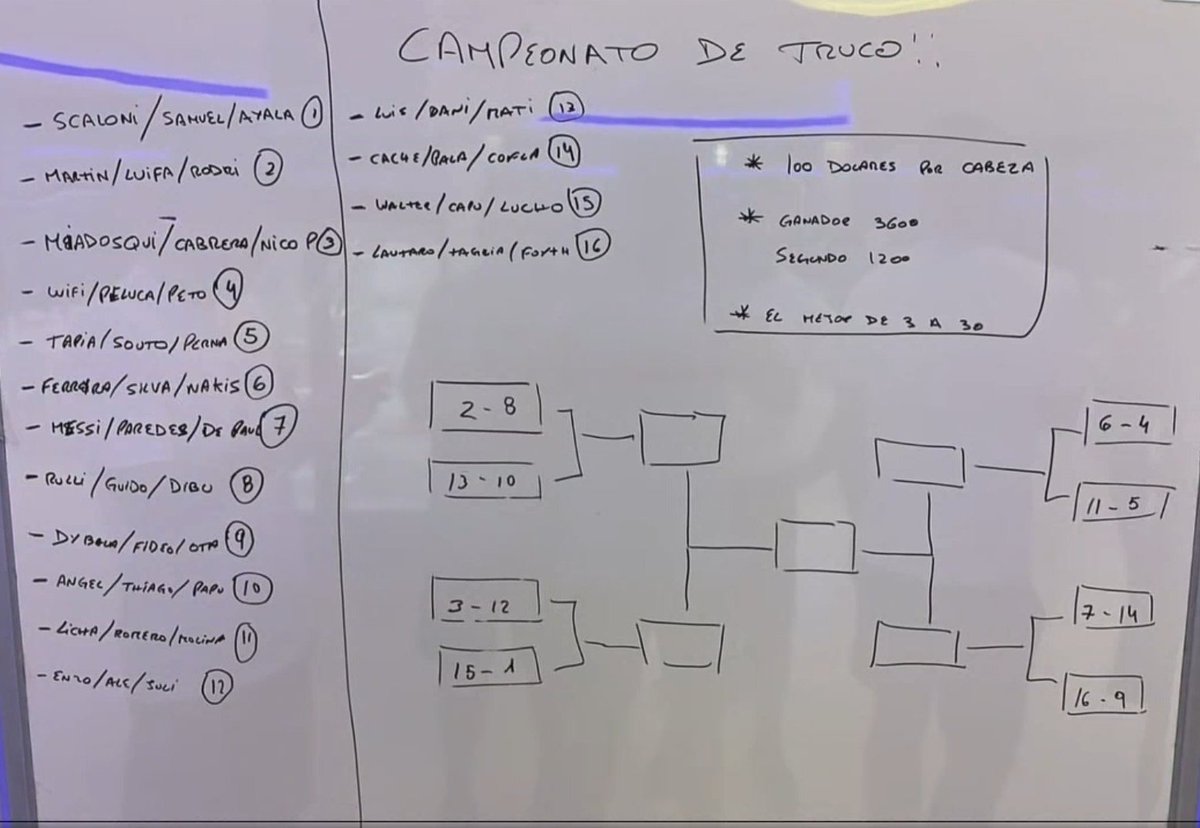 CAMPEONATO DE TRUCO!!
- SCALONI/SAMUEL/AYALA 1
- MARTIN/LUIFA/RODRI 2
- MIADOSQUI/CABRERA/NICO P 3
- WIFI/PELUCA/PETO 4
- TAPIA/SOUTO/PERNA 5
- FERREIRA/SILVA/NAKIS 6
- MESSI/PAREDES/DE PAUL 7
- RULLI/GUIDO/DIBU 8
- DYBALA/FIDEO/OTA 9
- ANGEL/THIAGO/PAPU 10
- LICHA/ROMERO/MOLINA 11
- ENZO/ALE/JULI 12
- LUIS/DANI/MATI 13
- CACHE/BALA/ 14
- WALTER/CAPU/LUCHO 15
- LAUTARO/TAGLIA/FOYTH 16
* 100 DOLARES POR CABEZA
* GANADOR 3600
SEGUNDO 1200
* EL MEJOR DE 3 A 30
2 - 8
13 - 10
3 - 12
15 - 1
6 - 4
11 - 5
7 - 14
16 - 9